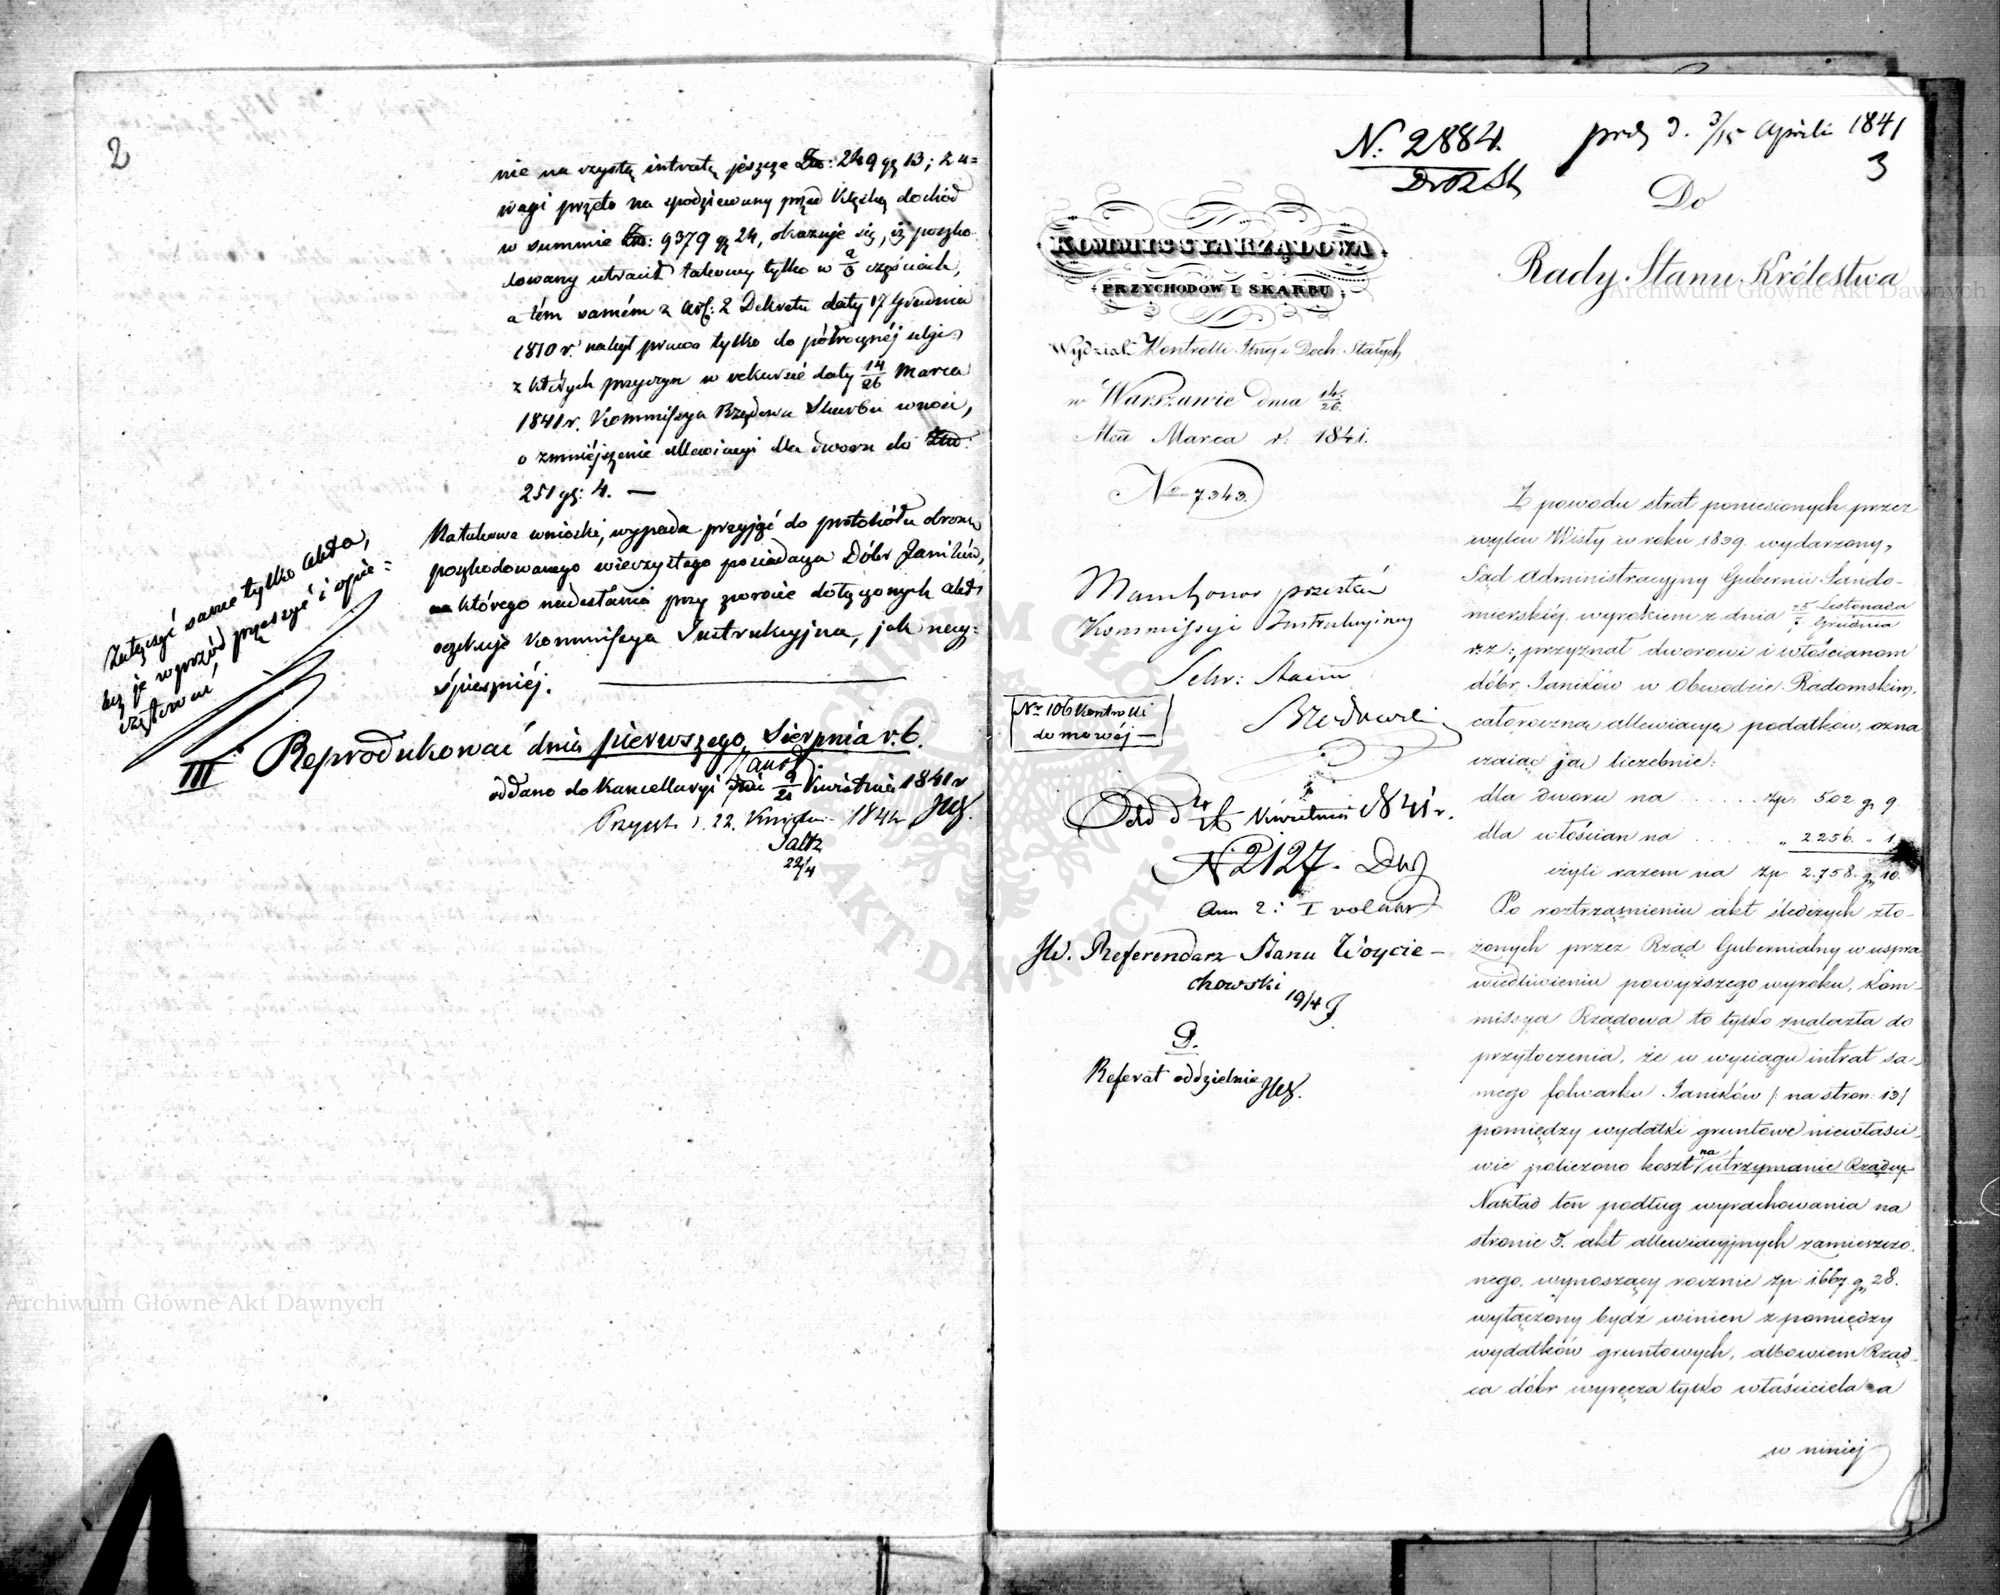 2
nie na czystą intratę jeszcze Złp: 249 gr 13; z u=
wagi przeto na spodziewany przed klęską dochód
w summie Złp: 9379 gr 24, okazuje się, iż poszko
dowany utracił takowy tylko w 2/3 częściach,
a tém samém z Art: 2 Dekretu daty 17 Grudnia
1810 r. nabył prawa tylko do półrocznéj ulgi
z których przyczyn w rekursie daty 14/26 Marca
1841 r. Kommissya Rządowa Skarbu wnosi,
o zmniéjszenie allewiacyi dla dworu do Złp:
251 gr: 4. —
Na takowe wnioski, wypada przyjąć do protokółu obronę
poszkodowanego wieczystego posiadacza Dóbr Janików,
na którego nadesłania przy zwrocie dołączonych akt
oczekuje Kommissya Instrukcyjna, jak nay=
spieszniéj.
Załączyć same tylko akta,
lecz je wprzód przeszyć i opie=
czętować
III Reprodukować dnia pierwszego Sierpnia r. b.
oddano do Kancellaryi dnia 9/21 Kwietnia 1841 r
22/4
N: 2884.
3/15 Aprili 1841
3
Do
Rady Stanu Królestwa
KOMMISSYA RZĄDOWA
PRZYCHODOW I SKARBU
Wydział Kontrolli Służ i Doch: Stałych
w Warszawie dnia 14/26.
Mca Marca r. 1841.
No 7343.
Kommissyi Instrukcyjnej
Sekr: Stanu
Nr 106 Kontrolli
domowéj —
Kwietnia 1841 r.
N 2127.
JW. Referendarz Stanu Woycie—
chowski
19/4
Referat oddzielnie
Z powodu strat poniesionych przez
wylew Wisły w roku 1839. wydarzony,
Sąd Administracyjny Gubernii Sando-
mierskiéj wyrokiem z dnia 25 Listopada / 7 Grudnia
r. z:, przyznał dworowi i włościanom
dóbr Janików w Obwodzie Radomskim,
całoroczną allewiacyą podatków, ozna
czaiąc ją liczebnie:
dla dworu na . . . . . . złp: 502 gr 9.
dla włościan na . . . . . „ 2256. „ 1
czyli razem na złp. 2,758. gr 10.
Po roztrząśnieniu akt śledczych zło-
żonych przez Rząd Gubernialny w uspra
wiedliwieniu powyższego wyroku, Kom-
missya Rządowa to tylko znalazła do
przytoczenia, że w wyciągu intrat sa-
mego folwarku Janików /: na stron: 13/
pomiędzy wydatki gruntowe niewłaści-
wie policzono koszt na utrzymanie Rządcy
Nakład ten podług wyrachowania na
stronie 5. akt allewiacyjnych zamieszczo.
nego, wynoszący rocznie złp: 1667 gr 28.
wyłączony bydź winien z pomiędzy
wydatków gruntowych, albowiem Rząd-
ca dóbr wyręcza tylko właściciela a
w niniej
Archiwum Główne Akt Dawnych
Archiwum Główne Akt Dawnych
ARCHIWUM GŁÓWNE AKT DAWNYCH